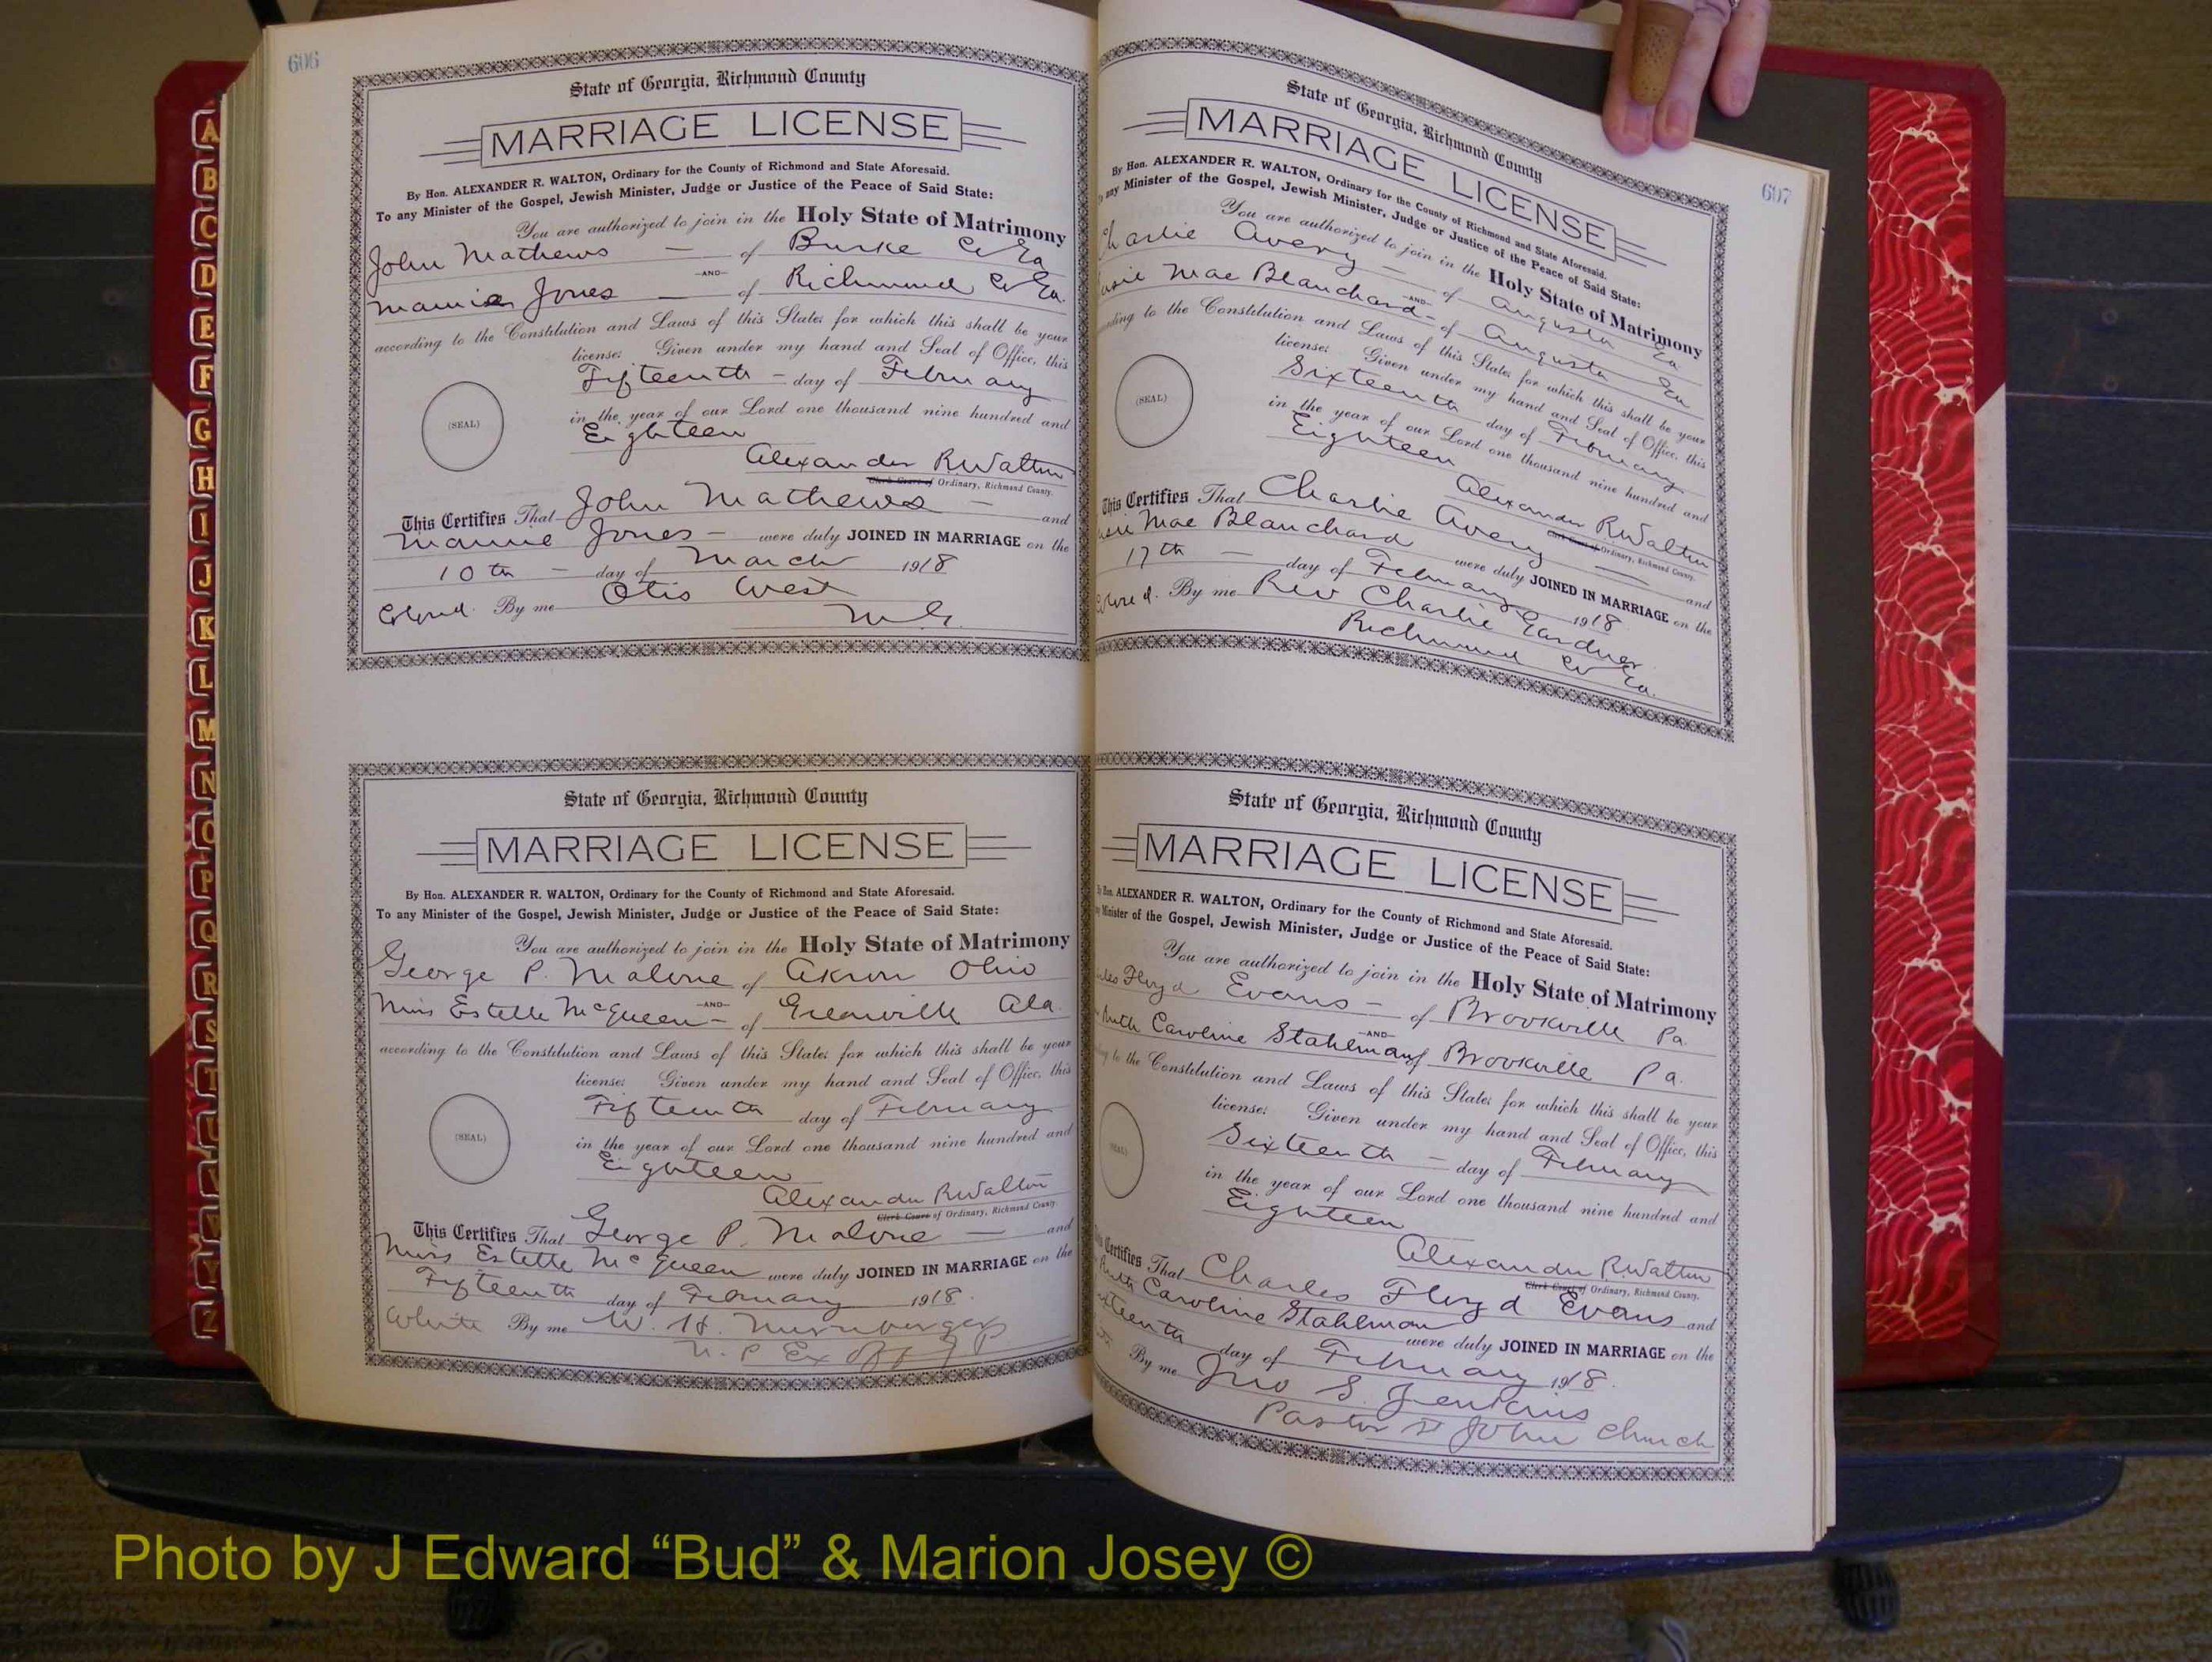 606
State of Georgia, Richmond County
MARRIAGE LICENSE
By Hon. ALEXANDER R. WALTON, Ordinary for the County of Richmond and State Aforesaid.
To any Minister of the Gospel, Jewish Minister, Judge or Justice of the Peace of Said State:
You are authorized to join in the Holy State of Matrimony
John Mathews — of Burke Co Ga
—AND—
Mamie Jones — of Richmond Co Ga.
according to the Constitution and Laws of this State; for which this shall be your
license: Given under my hand and Seal of Office, this
Fifteenth - day of February
in the year of our Lord one thousand nine hundred and
Eighteen
(SEAL)
Alexander R Walton
Clerk Court of Ordinary, Richmond County.
This Certifies That John Mathews — and
Mamie Jones - were duly JOINED IN MARRIAGE on the
10th - day of March 1918
Colored. By me Otis West
M.G.
State of Georgia, Richmond County
MARRIAGE LICENSE
By Hon. ALEXANDER R. WALTON, Ordinary for the County of Richmond and State Aforesaid.
To any Minister of the Gospel, Jewish Minister, Judge or Justice of the Peace of Said State:
You are authorized to join in the Holy State of Matrimony
George P. Malone of Akron Ohio
—AND—
Miss Estelle McQueen - of Greenville Ala
according to the Constitution and Laws of this State; for which this shall be your
license: Given under my hand and Seal of Office, this
Fifteenth day of February
in the year of our Lord one thousand nine hundred and
Eighteen
(SEAL)
Alexander R Walton
Clerk Court of Ordinary, Richmond County.
This Certifies That George P. Malone — and
Miss Estelle McQueen were duly JOINED IN MARRIAGE on the
Fifteenth day of February 1918.
White By me W. H.
N. P Ex Off J P
607
State of Georgia, Richmond County
MARRIAGE LICENSE
By Hon. ALEXANDER R. WALTON, Ordinary for the County of Richmond and State Aforesaid.
To any Minister of the Gospel, Jewish Minister, Judge or Justice of the Peace of Said State:
You are authorized to join in the Holy State of Matrimony
Charlie Avery — of Augusta Ga
—AND—
Mae Blanchard - of Augusta Ga
to the Constitution and Laws of this State; for which this shall be your
license: Given under my hand and Seal of Office, this
Sixteenth day of February
in the year of our Lord one thousand nine hundred and
Eighteen
(SEAL)
Alexander R Walton
Clerk Court of Ordinary, Richmond County.
This Certifies That Charlie Avery — and
Mae Blanchard were duly JOINED IN MARRIAGE on the
17th — day of February 1918
Colored. By me Rev Charlie Gardner
Richmond Co Ga.
State of Georgia, Richmond County
MARRIAGE LICENSE
By Hon. ALEXANDER R. WALTON, Ordinary for the County of Richmond and State Aforesaid.
Minister of the Gospel, Jewish Minister, Judge or Justice of the Peace of Said State:
You are authorized to join in the Holy State of Matrimony
Floyd Evans - of Brookville Pa.
—AND—
Ruth Caroline Stahlman of Brookville Pa.
to the Constitution and Laws of this State; for which this shall be your
license: Given under my hand and Seal of Office, this
Sixteenth - day of February
in the year of our Lord one thousand nine hundred and
Eighteen
(SEAL)
Alexander R Walton
Clerk Court of Ordinary, Richmond County.
This Certifies That Charles Floyd Evans and
Ruth Caroline Stahlman were duly JOINED IN MARRIAGE on the
day of February 1918.
By me Jno S. Jenkins
Pastor St John Church
A
B
C
D
E
F
G
H
I
J
K
L
M
N
O
P
Q
R
S
T
U
V
Y
Z
Photo by J Edward “Bud” & Marion Josey ©